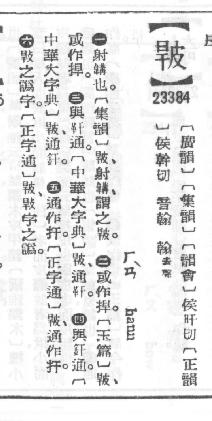 23384
〔廣韻〕〔集韻〕〔韻會〕侯旰切〔正韻
〕侯幹切 音翰 翰去聲
ㄏㄢˋ hann
㊀射韝也。〔集韻〕、射韝謂之。㊁或作捍。〔玉篇〕、
或作捍。㊂與釬通。〔中華大字典〕通。㊃與釬通。〔
中華大字典〕通釬。㊄通作扞。〔正字通〕通作扞。
㊅之譌字。〔正字通〕、字之譌。